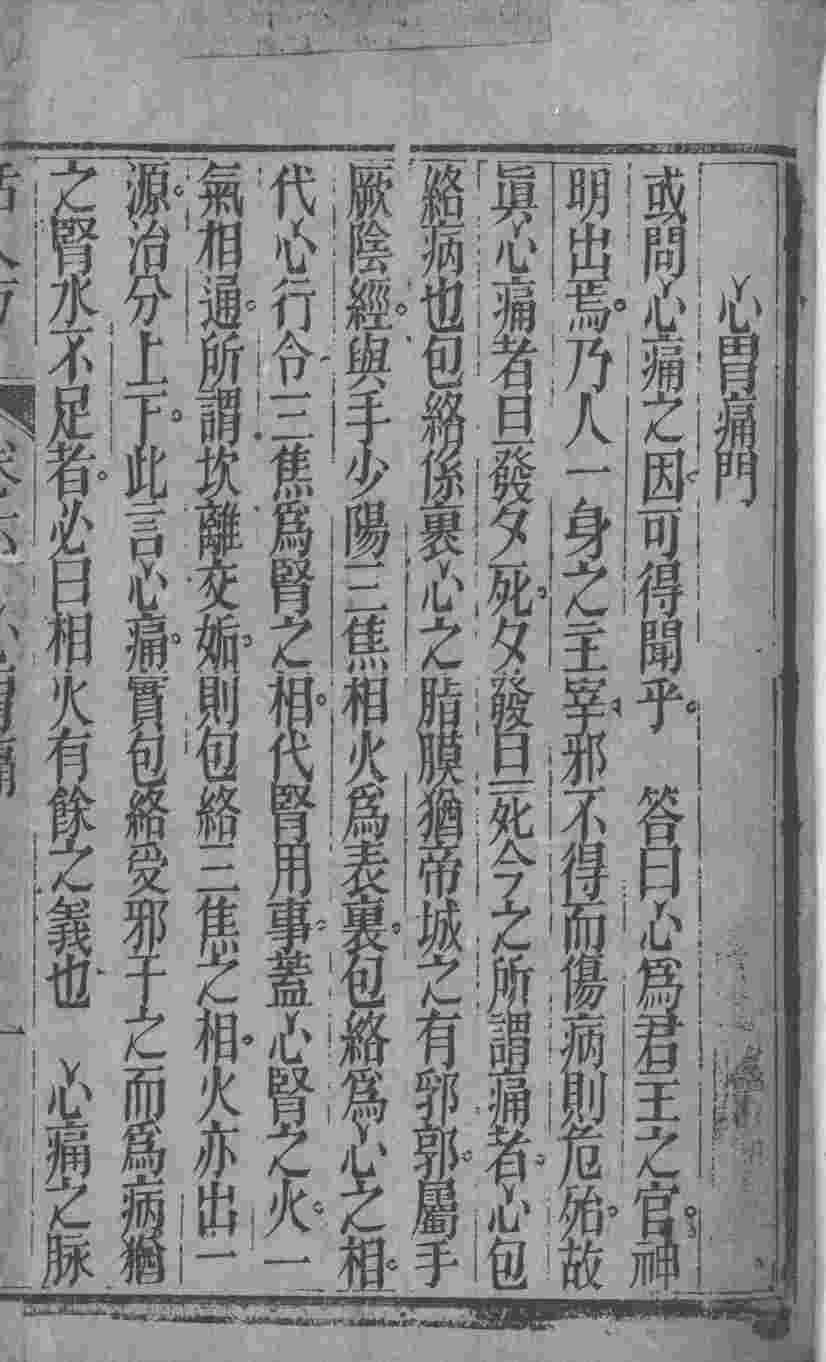 心胃痛門
或問心痛之因可得聞乎　答曰心爲君王之官神
明出焉乃人一身之主宰邪不得而傷病則危殆故
眞心痛者旦發夕死夕發旦死今之所謂痛者心包
絡病也包絡係裹心之脂膜猶帝城之有郛郭屬手
厥陰經與手少陽三焦相火爲表裏包絡爲心之相
代心行令三焦爲腎之相代腎用事蓋心腎之火一
氣相通所謂坎離交姤則包絡三焦之相火亦出一
源治分上下此言心痛實包絡受邪于之而爲病猶
之腎水不足者必曰相火有餘之義也　心痛之脉
心胃痛
一